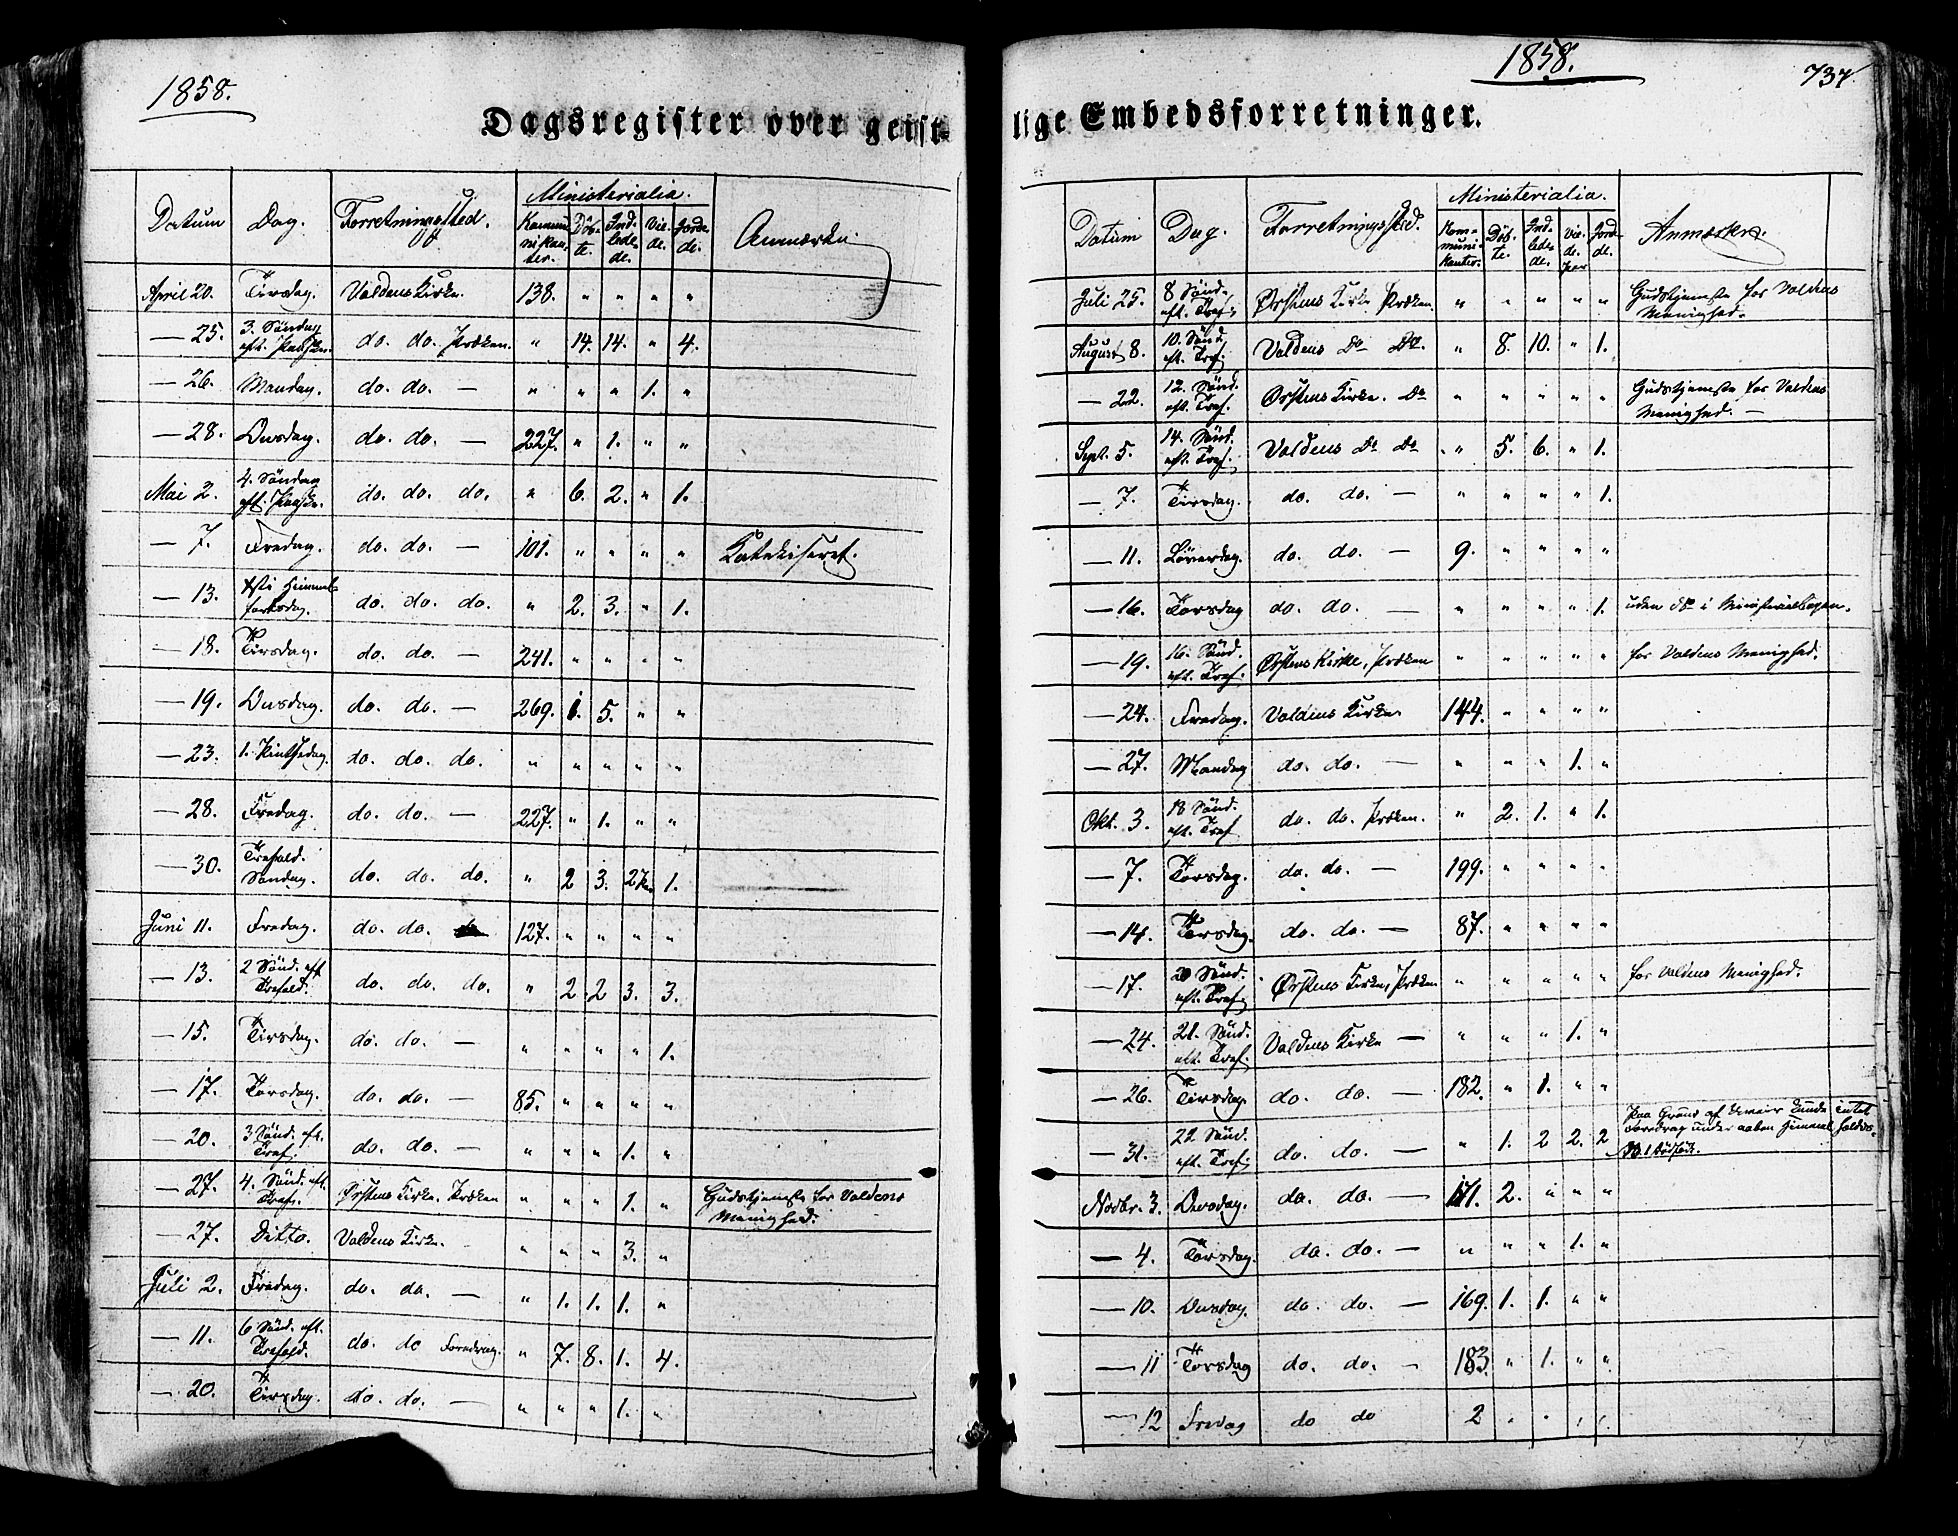 1858.
Dagsregister over geist-
Datum Dag. Forretningssted. Ministerialia. Anmærkn.
Kommunikanter. Døbte. Indledede. Viede. Jordede.
April 20. Tirsdag. Voldens Kirke. 138. " " " "
— 25. 3. Søndag eft. Paaske. do. do. Præken. " 14. 14. " 4.
— 26. Mandag. do. do. — " " " 1. "
— 28. Onsdag. do. do. — 227. " 1. " "
Mai 2. 4. Søndag eft. Paaske. do. do. do. " 6. 2. " 1.
— 7. Fredag. do. do. — 101. " " " " Katekiseret.
— 13. Xsti Himmelfartsdag. do. do. do. " 2. 3. " 1.
— 18. Tirsdag. do. do. — 241. " " " "
— 19. Onsdag. do. do. — 269. 1. 5. " "
— 23. 1. Pintsedag. do. do. do. " " " " "
— 28. Fredag. do. do. — 227. " 1. " "
— 30. Trefold. Søndag. do. do. do. " 2 3. 2 Par 1.
Juni 11. Fredag. do. do. 127. " " " "
— 13. 2 Sønd. eft. Trefold. do. do. do. " 2 2 3. 3.
— 15. Tirsdag. do. do. — " " " " 1.
— 17. Torsdag. do. do. — 85. " " " "
— 20. 3 Sønd. eft. Tref. do. do. — " " " 1. "
— 27. 4. Sønd. eft. Tref. Ørstens Kirke. Præken " " " 1. " Gudstjeneste for Voldens
Menighed.
— 27. Ditto. Voldens Kirke. " " " 3. "
Juli 2. Fredag. do. do. — " 1. 1. 1. "
— 11. 6 Sønd. eft. Trefold. do. do Foredrag. " 7. 8. 1. 4.
— 20. Tirsdag. do. do. — " " " 1. "
1858. 737
lige Embedsforretninger.
Datum Dag. Forretningssted. Ministerialia. Anmærkn.
Kommunikanter. Døbte. Indledede. Viede Par Jordede.
Juli 25. 8 Sønd. eft. Tref. Ørstens Kirke Præken " " " " " Gudstjeneste for Voldens
Menighed.
August 8. 10. Sønd. eft. Tref. Voldens Do Do. " 8. 10. " 1.
— 22. 12. Sønd. eft. Tref. Ørstens Kirke. Do " " " " " Gudstjeneste for Voldens
Menighed. —
Sept. 5. 14. Sønd. eft. Tref. Voldens Do Do " 5. 6. " 1.
— 7. Tirsdag. do. do. — " " " " 1.
— 11. Løverdag. do. do. — 9. " " " "
— 16. Torsdag do. do. — " " " " 1. uden No i Ministerialbogen.
— 19. 16. Sønd. eft. Tref. Ørstens Kirke, Præken " " " " " for Voldens Menighed.
— 24. Fredag. Voldens Kirke. 144. " " " "
— 27. Mandag do. do. — " " " 1. "
Okt. 3. 18 Sønd. eft. Tref do. do. Præken. " 2. 1. " 1.
— 7. Torsdag. do. do. — 199. " " " "
— 14. Torsdag. do. do. — 87. " " " "
— 17. 20 Sønd. eft. Tref. Ørstens Kirke, Præken " " " " " for Voldens Menighed.
— 24. 21. Sønd. eft. Tref. Voldens Kirke — " " " 1. "
— 26. Tirsdag. do. do. — 182. " 1. " "
— 31. 22. Sønd. eft. Tref. do. do. — " 1. 2 2. 2 Paa Grund af Uveir Kunde intet
Foredrag under aaben Himmel holdes.
No. 1 Dødfødt.
Novbr. 3. Onsdag. do. do. — 171. 2. " " "
— 4. Torsdag. do. do. — " " " 1. "
— 10. Onsdag. do. do. — 169. 1. 1. " "
— 11 Torsdag do. do. — 183. " 1. " "
— 12 Fredag do do 2 " " " "